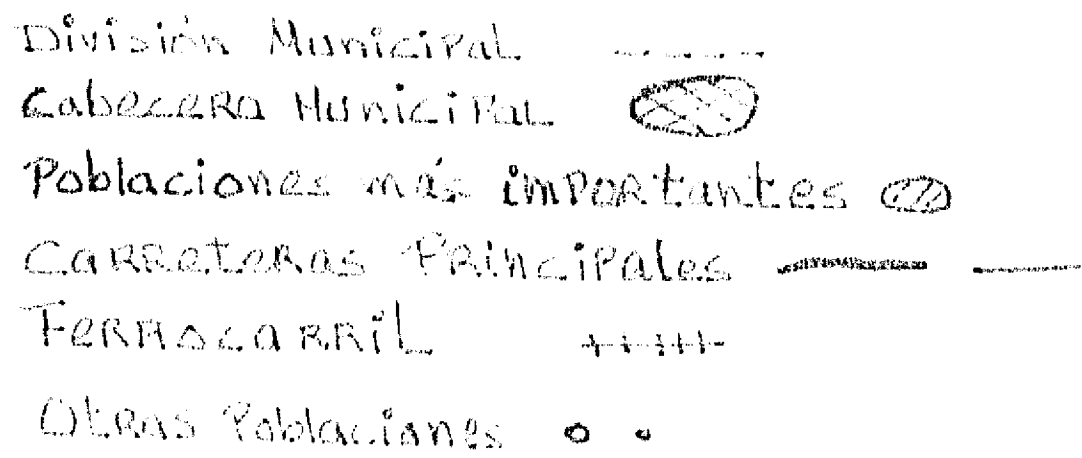 División Municipal
Cabecera Municipal
Poblaciones más importantes
Carreteras Principales
Ferrocarril
Otras Poblaciones